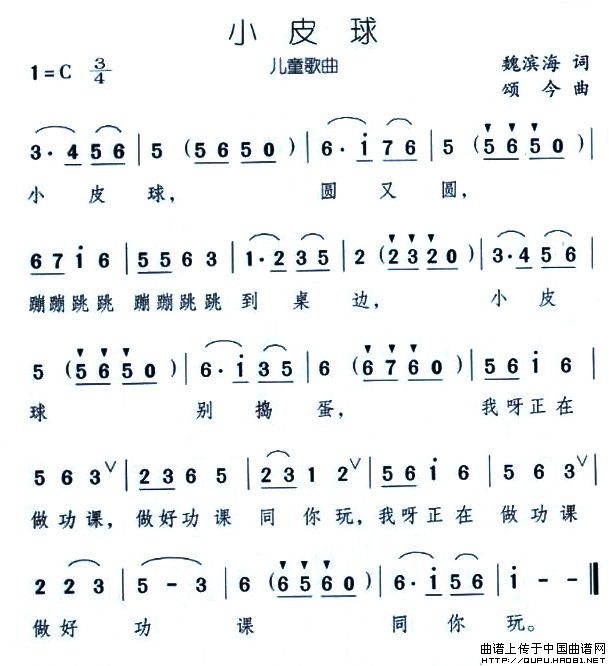 小皮球
1=C 3/4 儿童歌曲 魏滨海 词
颂今 曲
3· 4 5 6 | 5 (5 6 5 0) | 6· i 7 6 | 5 (5 6 5 0) |
小皮球, 圆又圆,
6 7 i 6 | 5 5 6 3 | 1· 2 3 5 | 2 (2 3 2 0) | 3· 4 5 6 |
蹦蹦跳跳 蹦蹦跳跳 到桌边, 小皮
5 (5 6 5 0) | 6· i 3 5 | 6 (6 7 6 0) | 5 6 i 6 |
球 别捣蛋, 我呀正在
5 6 3 ∨ | 2 3 6 5 | 2 3 1 2 ∨ | 5 6 i 6 | 5 6 3 |
做功课, 做好功课 同你玩, 我呀正在 做功课
2 2 3 | 5 - 3 | 6 (6 5 6 0) | 6· i 5 6 | i - - ‖
做好功课 同你玩。
曲谱上传于中国曲谱网
HTTP://QUPU.HAO81.NET